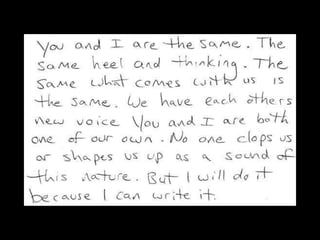 You and I are the same. The
same heel and thinking. The
same what comes with us is
the same. We have each others
new voice You and I are both
one of our own. No one clops us
or shapes us up as a sound of
this nature. But I will do it
because I can write it.